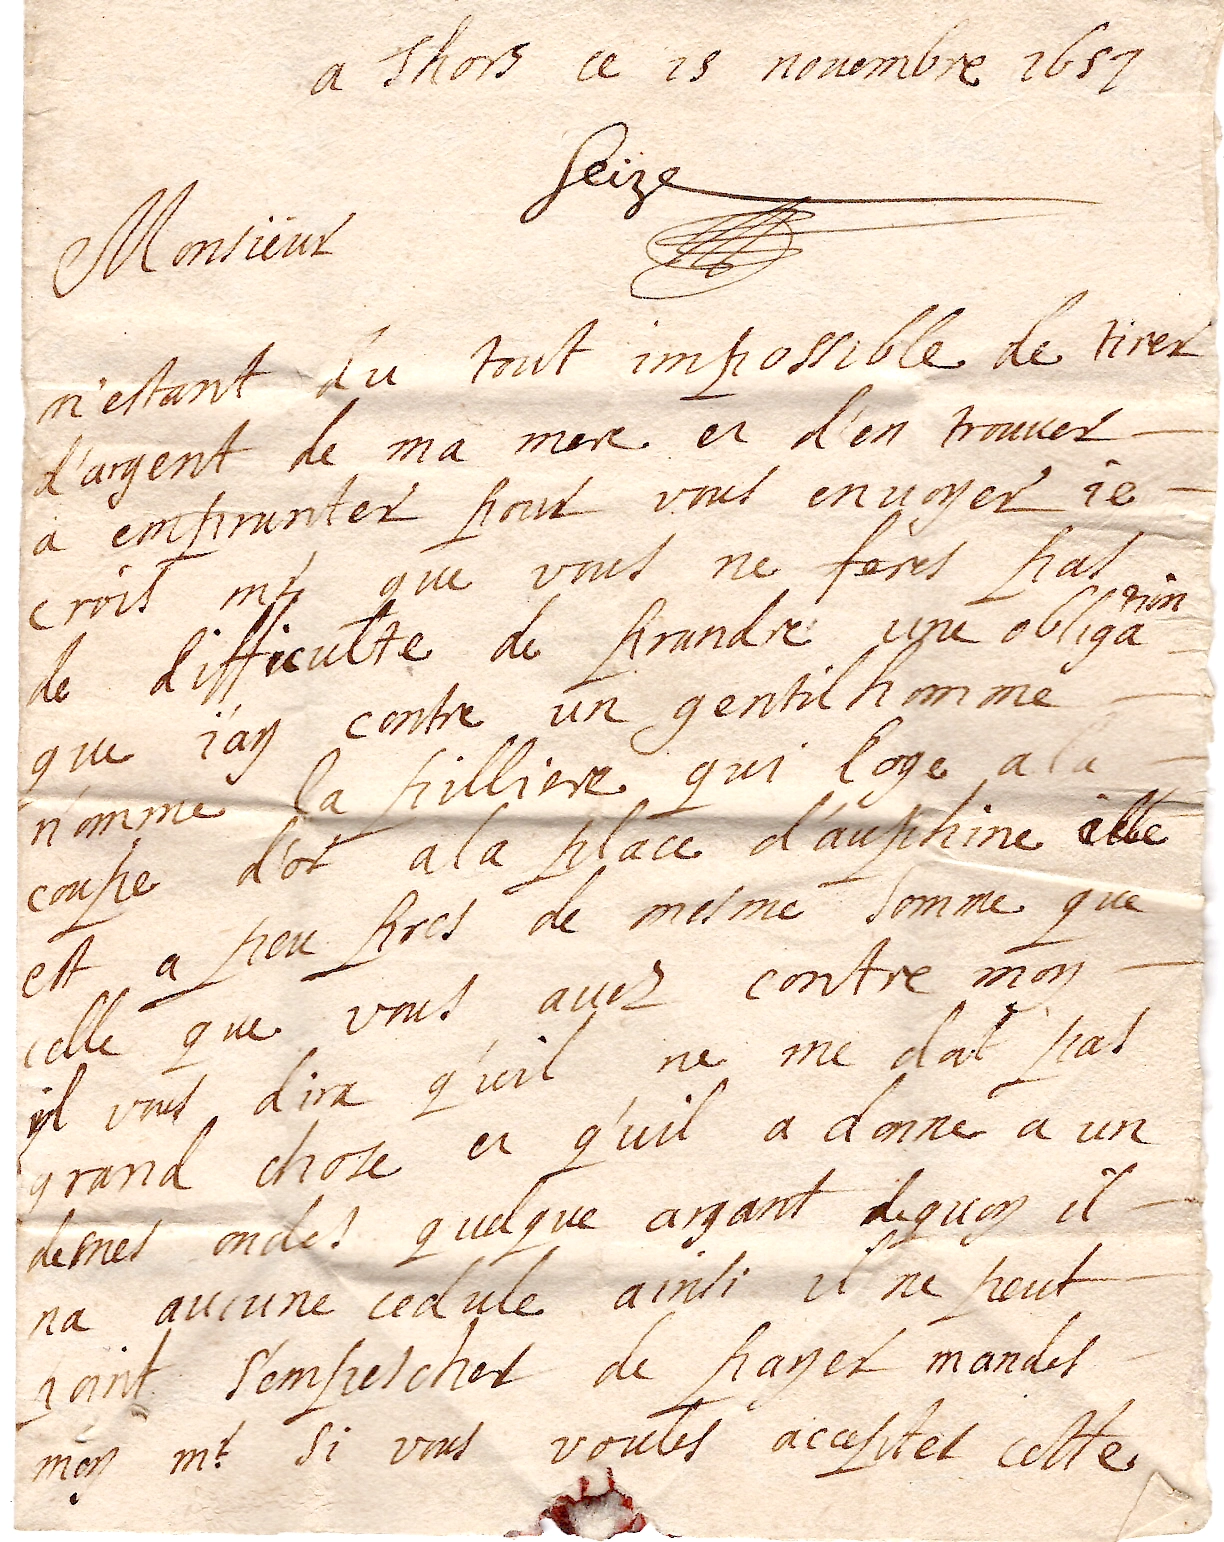 a Thors ce 15 nouembre 1657
Seize
Monsieur
n'estant du tout impossible de tirer
d'argent de ma mere et d'en trouuer
a emprunter pour vous enuoyer ie
crois mr que vous ne feres pas
de difficulte de prandre une obligation
que i'ay contre un gentilhomme
nomme la pilliere qui loge a la
coupe d'or a la place d'auphine elle
est a peu pres de mesme somme que
celle que vous auez contre moy
il vous dira qu'il ne me doit pas
grand chose et qu'il a donne a un
de mes oncles quelque argant de quoy il
na aucune cedule ainsi il ne peut
point s'empescher de payer mandes
moy mr si vous voules accepter cette